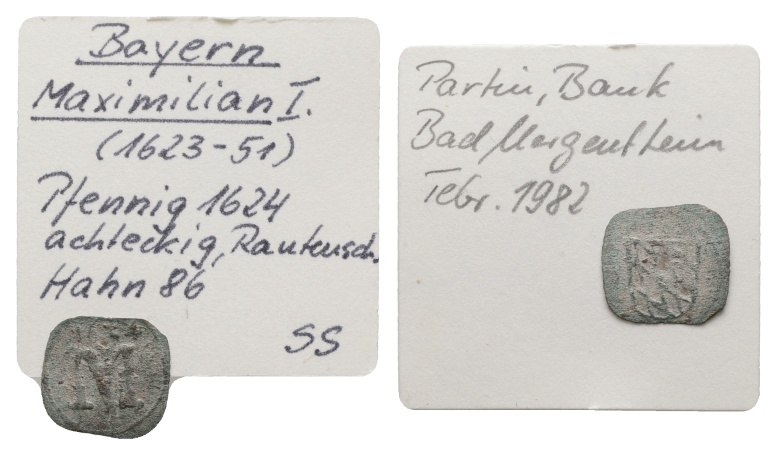 Bayern
Maximilian I.
(1623-51)
Pfennig 1624
achteckig, Rautensch.
Hahn 86
SS
M
Partin, Bank
Bad Mergentheim
Febr. 1982